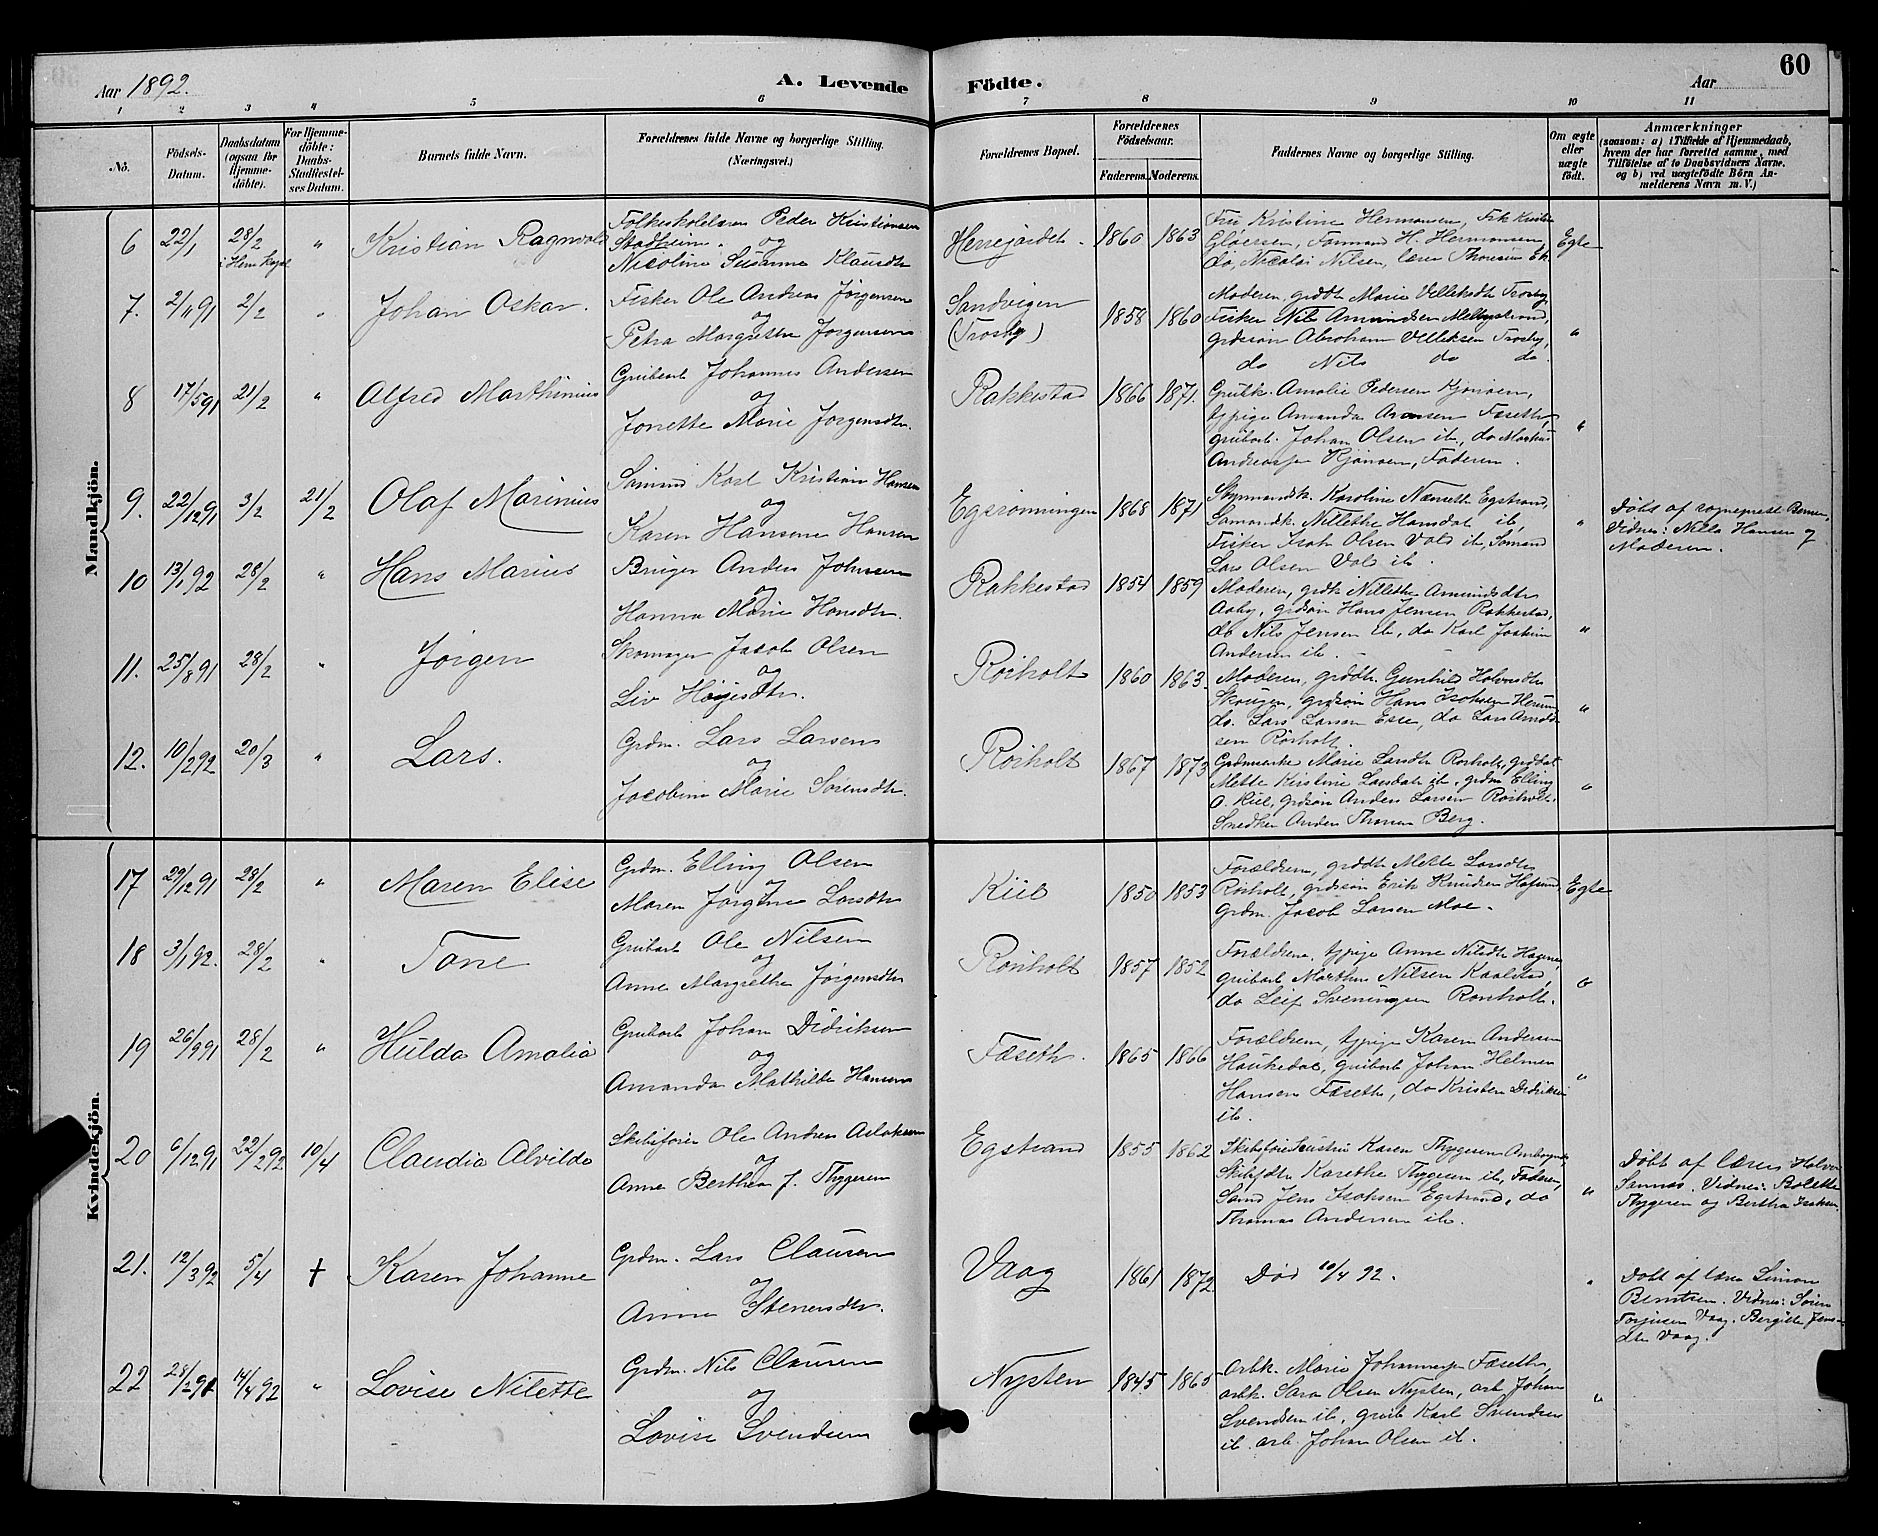 Aar 1892.
A. Levende
Födte.
Aar
60
1 2 3 4 5 6 7 8 9 10 11
No.
Födsels-
Datum.
Daabsdatum
(ogsaa for
Hjemme-
döbte).
For Hjemme-
döbte:
Daabs-
Stadfæstel-
ses Datum.
Barnets fulde Navn.
Forældrenes fulde Navne og borgerlige Stilling.
(Næringsvei.)
Forældrenes Bopæl.
Forældrenes
Födselsaar.
Faderens. Moderens.
Faddernes Navne og borgerlige Stilling.
Om ægte
eller
uægte
födt.
Anmærkninger
(saasom: a) i Tilfælde af Hjemmedaab,
hvem der har forrettet samme, med
Tilföielse af to Daabsvidners Navne,
og b) ved uægtefödte Börn An-
melderens Navn m. V.)
Mandkjön.
6 22/1 28/2 " Kristian Ragnvald
Folkeskolelærer Peder Kristiansen
Stadheim og
Nicoline Susanne Klausdtr
Herregårdet. 1860 1863
Fru Kristine Hermansen, Frk
Gløersen, Formand H. Hermansen,
do, Nicolai Nilsen, lærer
Egte
7. 2/11 91 2/2 " Johan Oskar.
Fisker Ole Andreas Jørgensen
og
Petra Margrethe Jørgensen
Sandvigen
(Trosby)
1858 1860
Moderen, grddt. Marie Trosby,
Fisker Nils Amundsen
grdsøn Abraham Trosby,
do Nils do do
"
8 17/5 91 21/2 " Alfred Marthinius
Grubearb Johannes Andersen
og
Jonette Marie Jørgensdtr.
Rakkestad 1866 1871.
Grubk. Amalie Pedersen
tjpige Amanda Fæseth,
grubarb. Johan Olsen ib., do
Faderen.
"
9. 22/12 91 3/2 21/2 Olaf Marinius
Sømand Karl Kristian Hansen
og
Karen Hansene Hansen
Egsrønningen 1868 1871
Karoline Egstrand,
Sømandsk. Nillethe Hansdat ib,
Fisker Isak Olsen Vold ib, Sømand
Lars Olsen Vold ib.
"
Døbt af sogneprest
Vidner: Hansen og
Moderen.
10 13/1 92 28/2 " Hans Marius
Bruger Anders Johnsen
og
Hanna Marie Hansdtr.
Rakkestad 1854 1859
Moderen, grdk Nillethe Amundsdtr
Aaby, grdsøn Hans Jensen Rakkestad,
do Nils Jensen ib, do Karl Joakim
Andersen ib.
"
11. 25/8 91 28/2 " Jørgen
Skomager Jacob Olsen
og
Liv
Rørholt 1860 1863.
Moderen, grddtr. Gunhild Halvorsdtr
grdsøn Hans Isaksen
do. Lars Larsen do Lars
sen Rørholt.
"
12. 10/2 92 20/3 " Lars.
Grdm. Lars Larsen
og
Jacobine Marie Sørensdtr.
Rørholt 1867 1873
Marie Larsdtr Rørholt,
Mette Kirstine Larsdatr ib, grdm Elling
O. Kiil, grdsøn Anders Larsen Rørholt,
Snedker Anders Berg.
"
Kvindekjön.
17 29/12 91 28/2 " Maren Elise
Grdm. Elling Olsen
og
Maren Jørgine Larsdtr
Kiil 1850 1853
Forældrene, grddtr Mette Larsdtr
Rørholt, grdsøn Erik Knudsen
Grdm. Jacob Larsen Moe.
Egte
18 3/1 92. 28/2 " Tone
Grubarb Ole Nilsen
og
Anne Margrethe Jørgensdtr
Rørholt 1857 1852
Forældrene, tjpige Anne Nilsdtr
grubarb Marthin Nilsen
do Leif Rørholt.
"
19 26/9 91 28/2 " Hulda Amalia
Grubarb Johan Didriksen
og
Amanda Mathilde Hansen
Fæseth. 1865 1866
Forældrene, tjpige Karen Andersen
Haukedal, grubarb Johan
Hansen Fæseth, do Kristen Didriksen
ib.
"
20 6/12 91 22/2 92 10/4 Claudia Alvilda
Skibsfører Ole Andreas
og
Anne Berthea J. Thygesen
Egstrand 1855 1862
Karen Thygesen
Karethe Thygesen ib, Faderen,
Sømd Jens Isaksen Egstrand, do
Thomas Andersen ib.
"
Døbt af lærer
Vidner: Bolette
Thygesen og Berthe Isaksen.
21. 12/3 92 5/4 † Karen Johanne
Grdm. Lars Clausen
og
Anne Stenersdtr.
Vaag 1861 1872
Død 10/4 92.
"
Døbt af lærer Simon
Berntsen. Vidner: Søren
Vaag. Bergitte Jens
dtr Vaag.
22 28/2 91 14/4 92 " Lovise Nilette
Grdm. Nils Clausen
og
Lovise Svendsen
Nysten 1845 1865
Arbk. Marie Johannesen Fæseth,
arbk. Sara Olsen Nysten, arb Johan
Svendsen ib, grub Karl Svendsen
ib. arb. Johan Olsen ib.
"